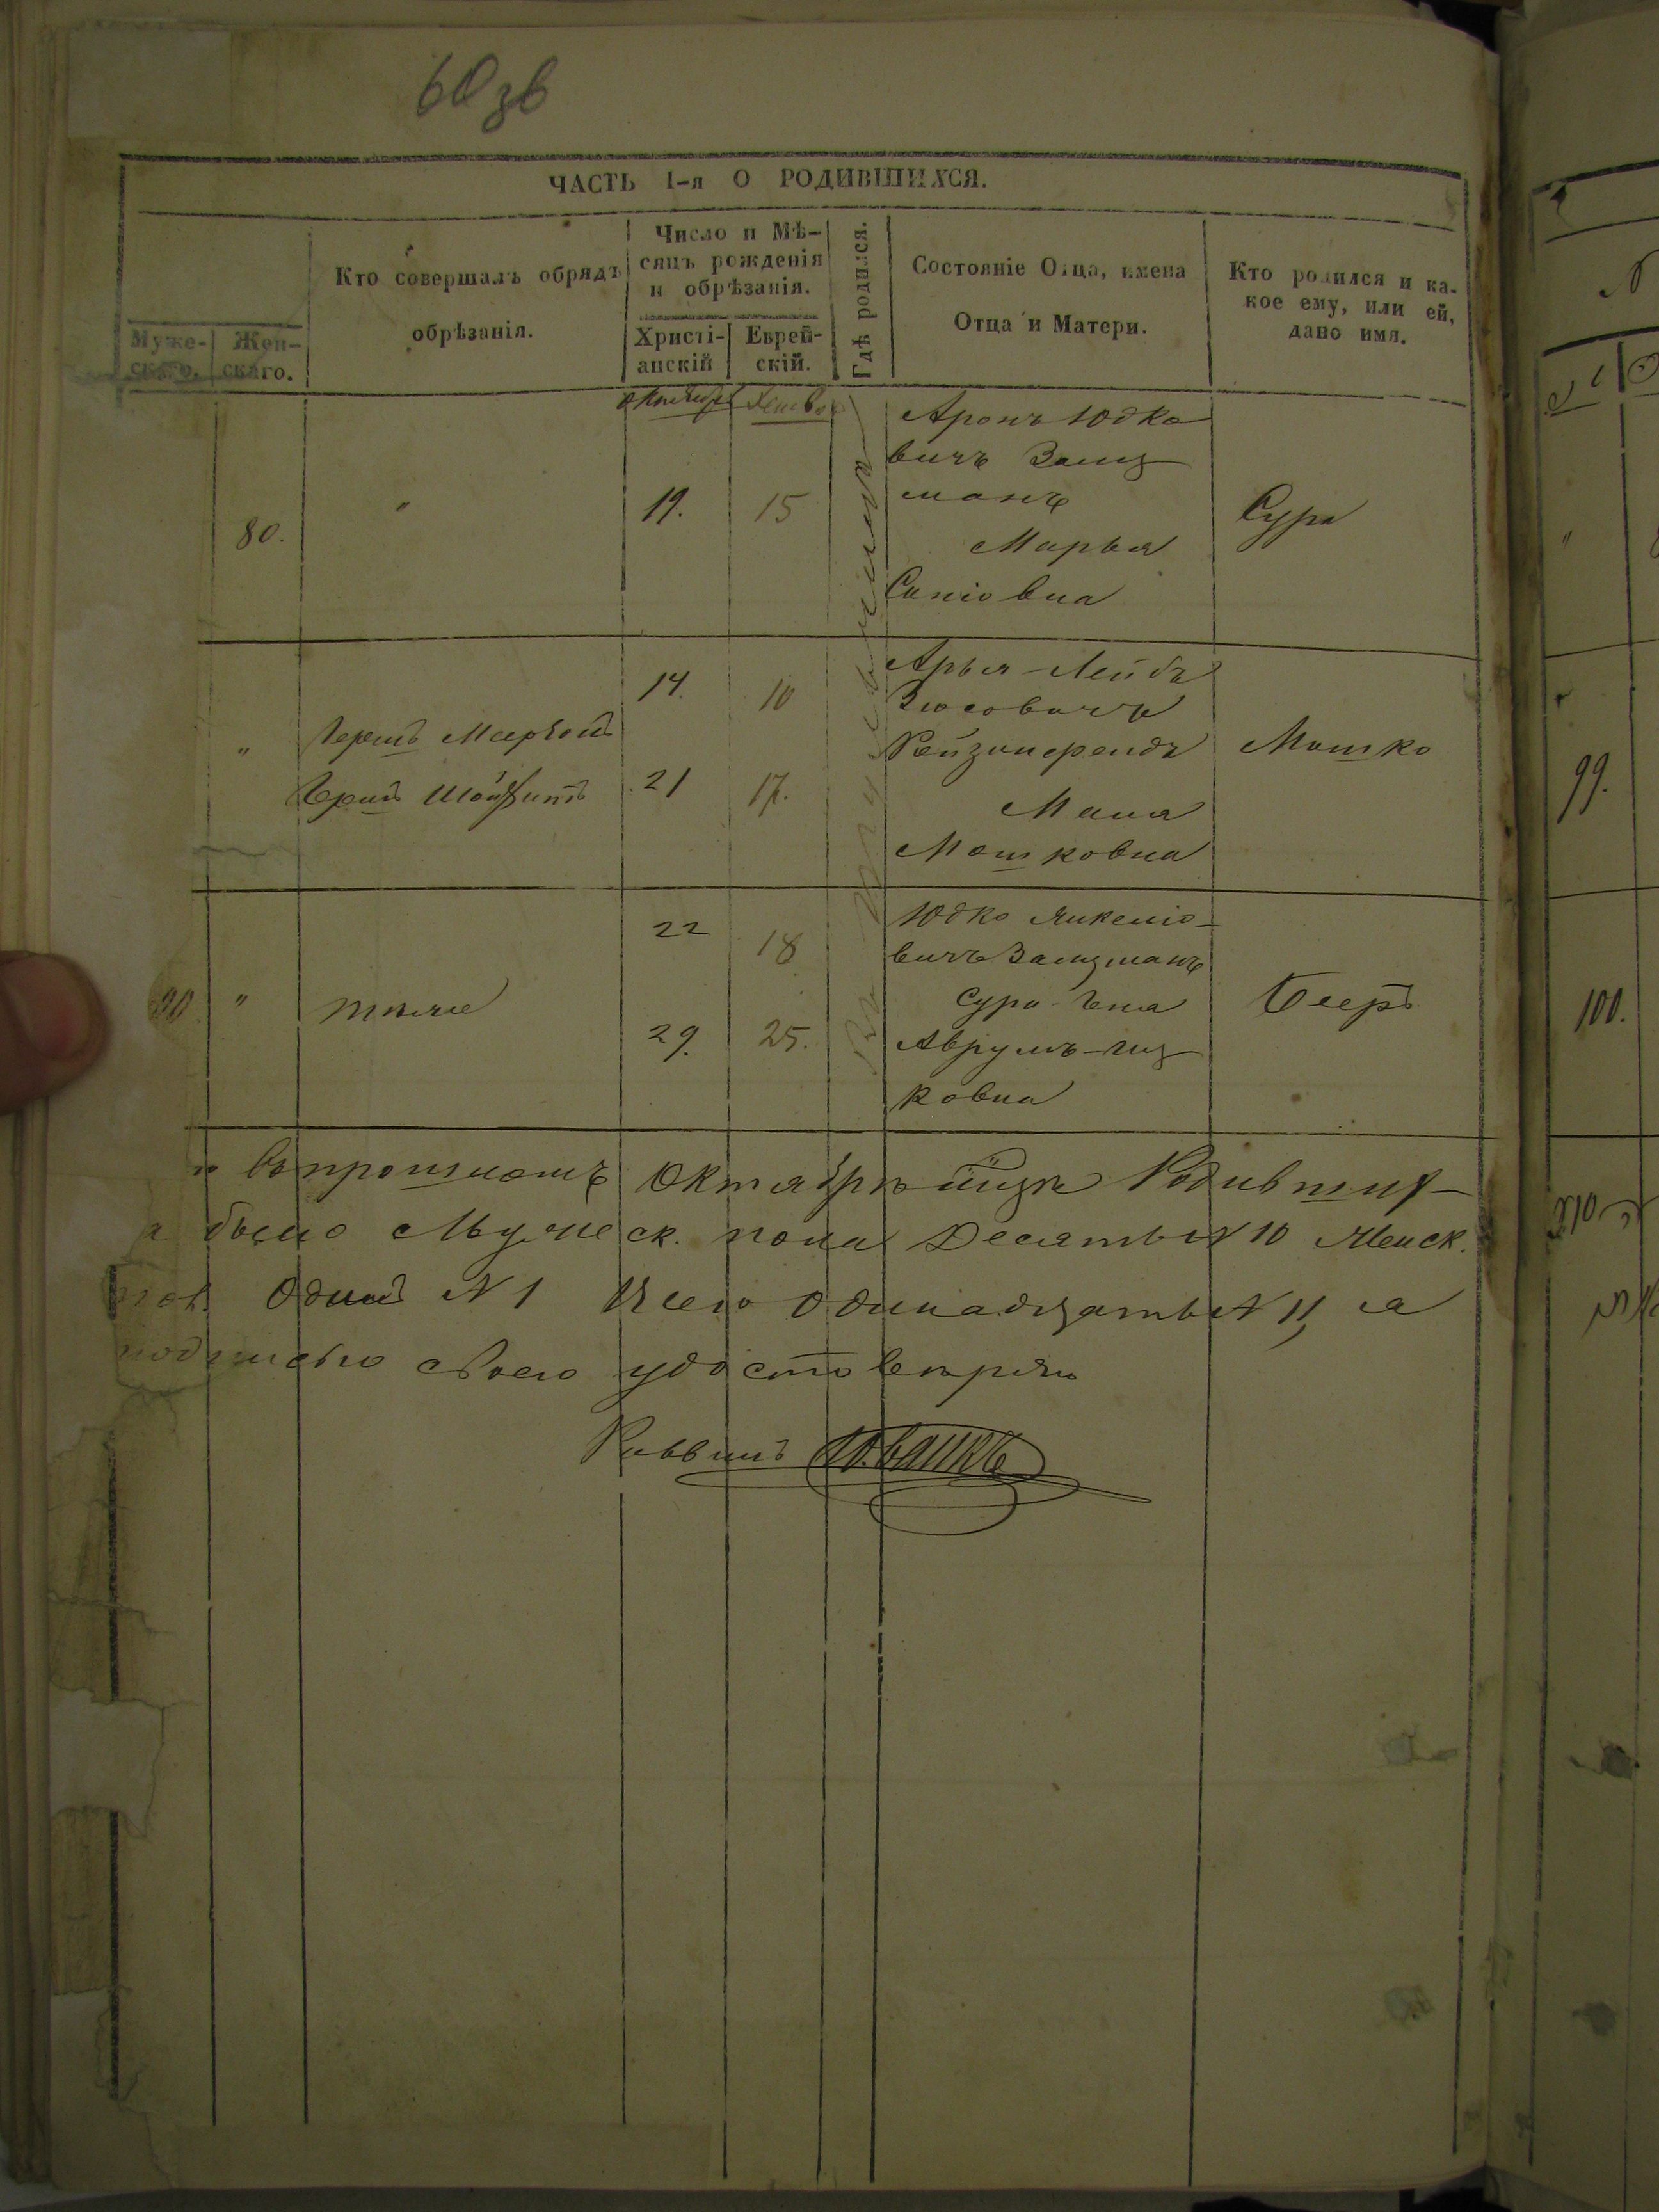 60 зв
ЧАСТЬ 1-я О РОДИВШИХСЯ.
Муже-скаго.
Жен-скаго.
Кто совершалъ обрядъ
обрѣзанія.
Число и Мѣ-
сяцъ рожденія
и обрѣзанія.
Христі-
анскій
Еврей-
скій.
Гдѣ родился.
Состояніе Отца, имена
Отца и Матери.
Кто родился и ка-
кое ему, или ей,
дано имя.
Октября
80.
"
19.
15
Аронъ Юдко
вичъ Залц
манъ
Марья
Сура
"
Гершъ
Гершъ
14.
10
21
17.
Арья-Лейбъ
Зюсовичъ
Мошко
Маля
Мошковна
90
"
тѣже
22
18
29.
25.
Юдко Янкеліо-
вичъ Залцманъ
Сура-Гена
Аврумъ-Иц
ковна
Бееръ
въ прошломъ Октябрѣ м-цѣ Родивших-
было Мужеск. пола Десять N 10 Женск.
Одна N 1 Всего одинадцать N 11, а
подписью своею удостовѣряю
Раввинъ
99.
100.